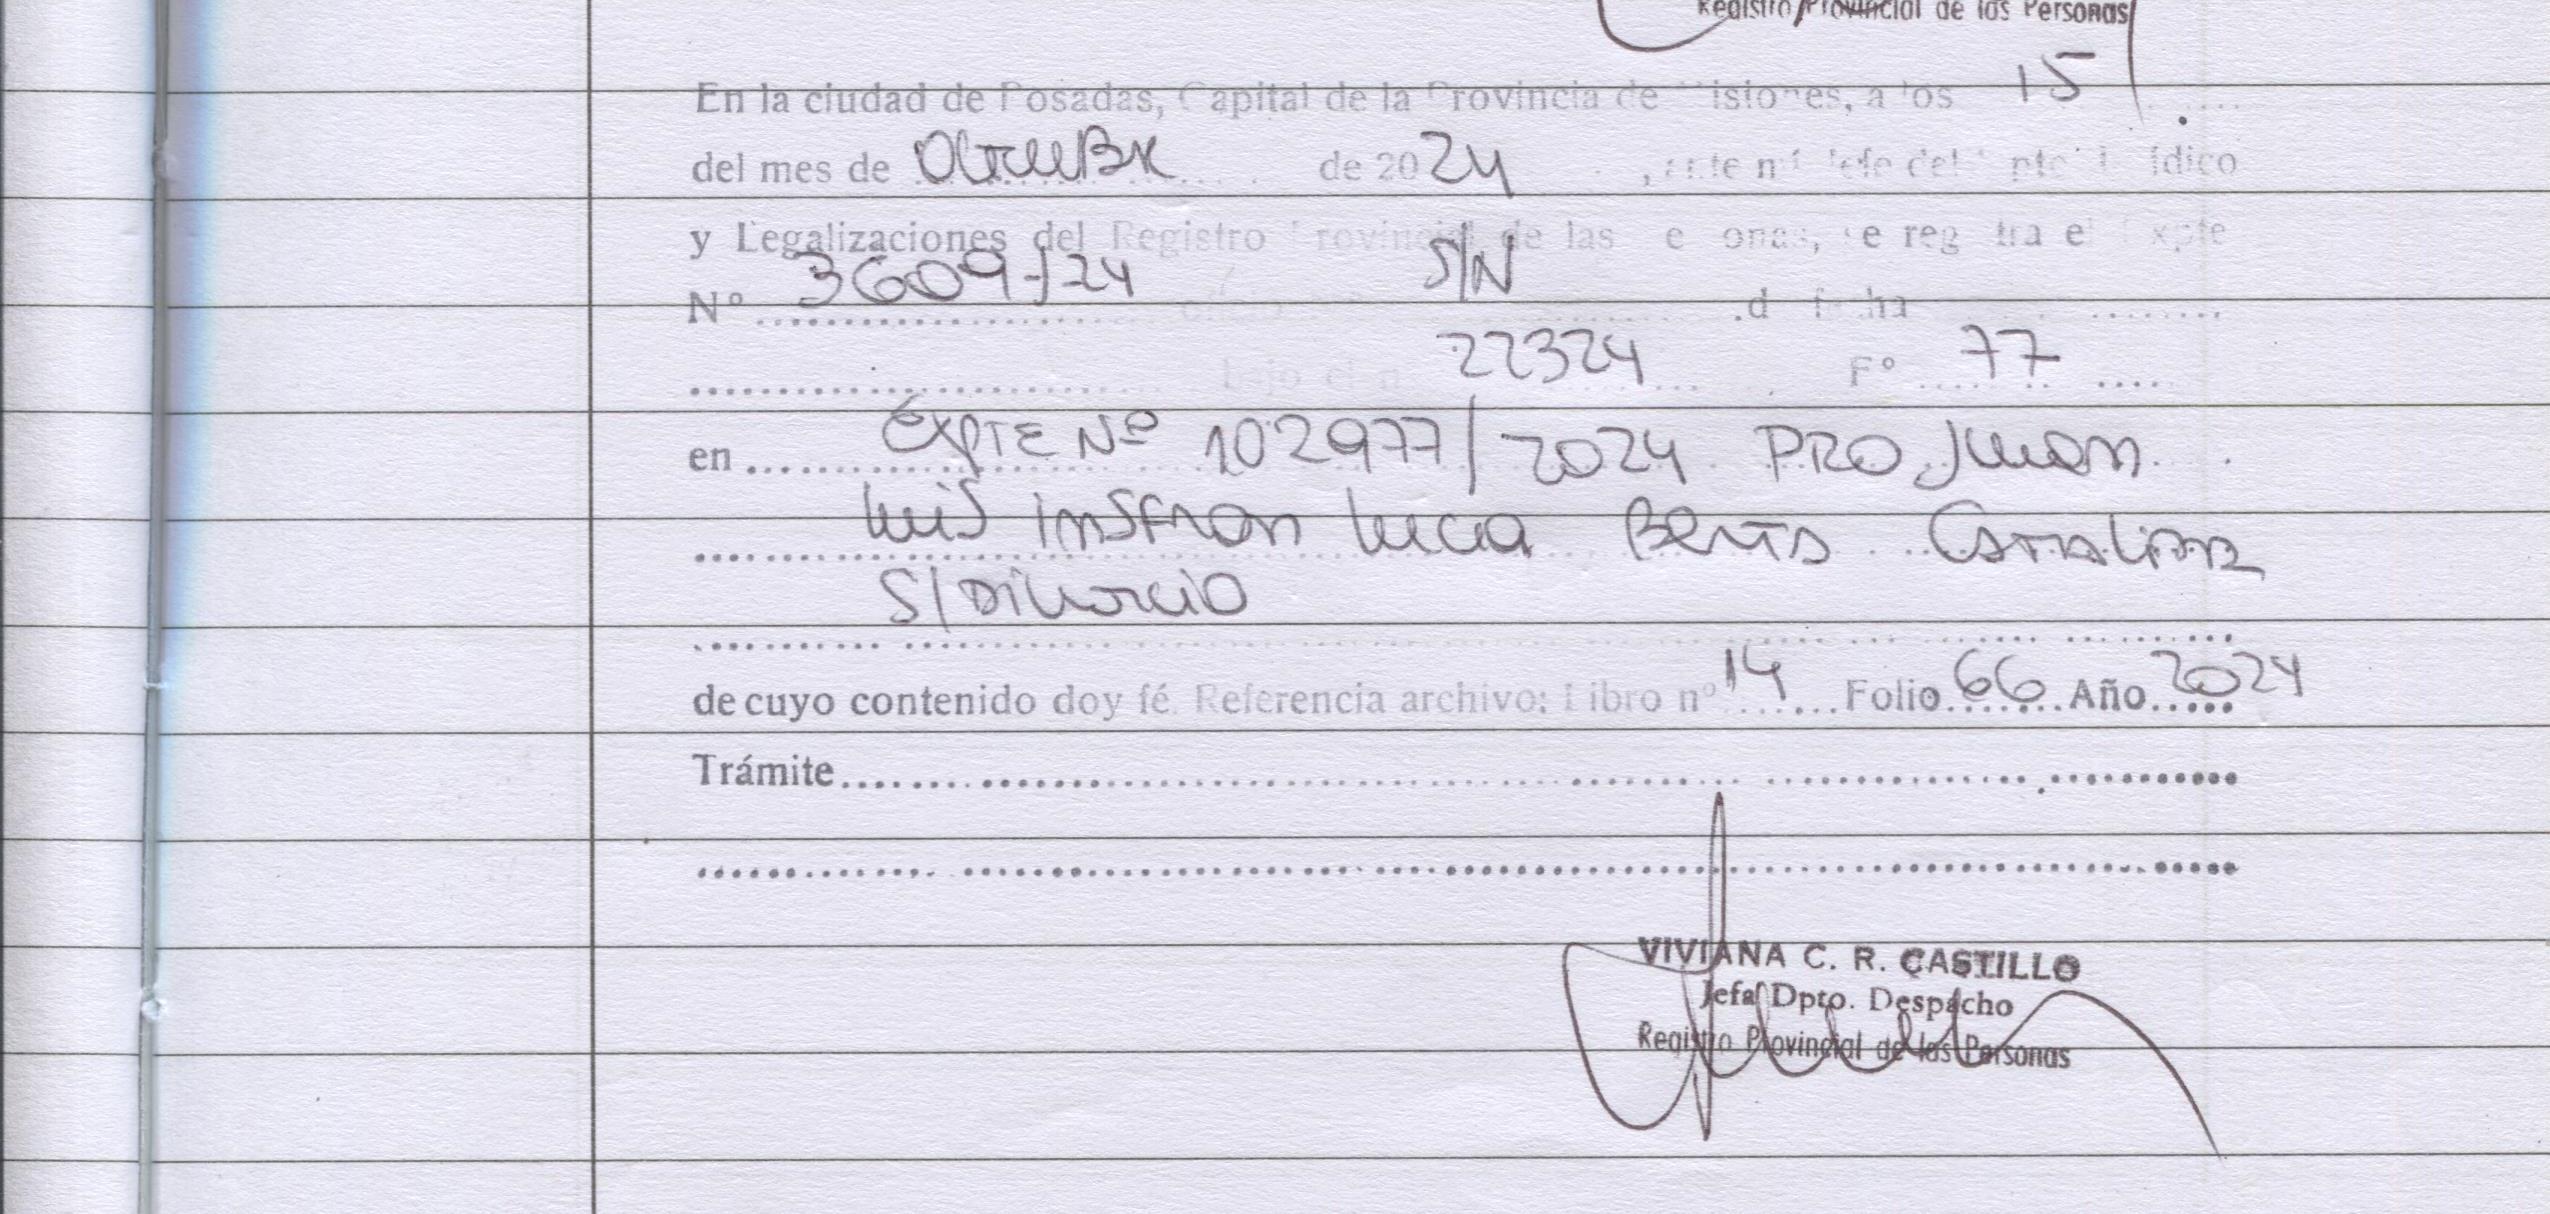 Registro Provincial de las Personas
En la ciudad de Posadas, Capital de la Provincia de Misiones, a los 15
del mes de Octubre de 2024, ante mí Jefe del Dpto Jurídico
y Legalizaciones del Registro Provincial de las Personas, se registra el Expte
Nº 3609-/24 oficio S/N de fecha
bajo el nº 22324 Fº 77
en EXPTE Nº 102977/2024 PRO Juan
Luis Insfran Lucia Benits Catalina
S/Divorcio
de cuyo contenido doy fé. Referencia archivo: Libro nº 14 Folio 66 Año 2024
Trámite
VIVIANA C. R. CASTILLO
Jefa Dpto. Despacho
Registro Provincial de las Personas